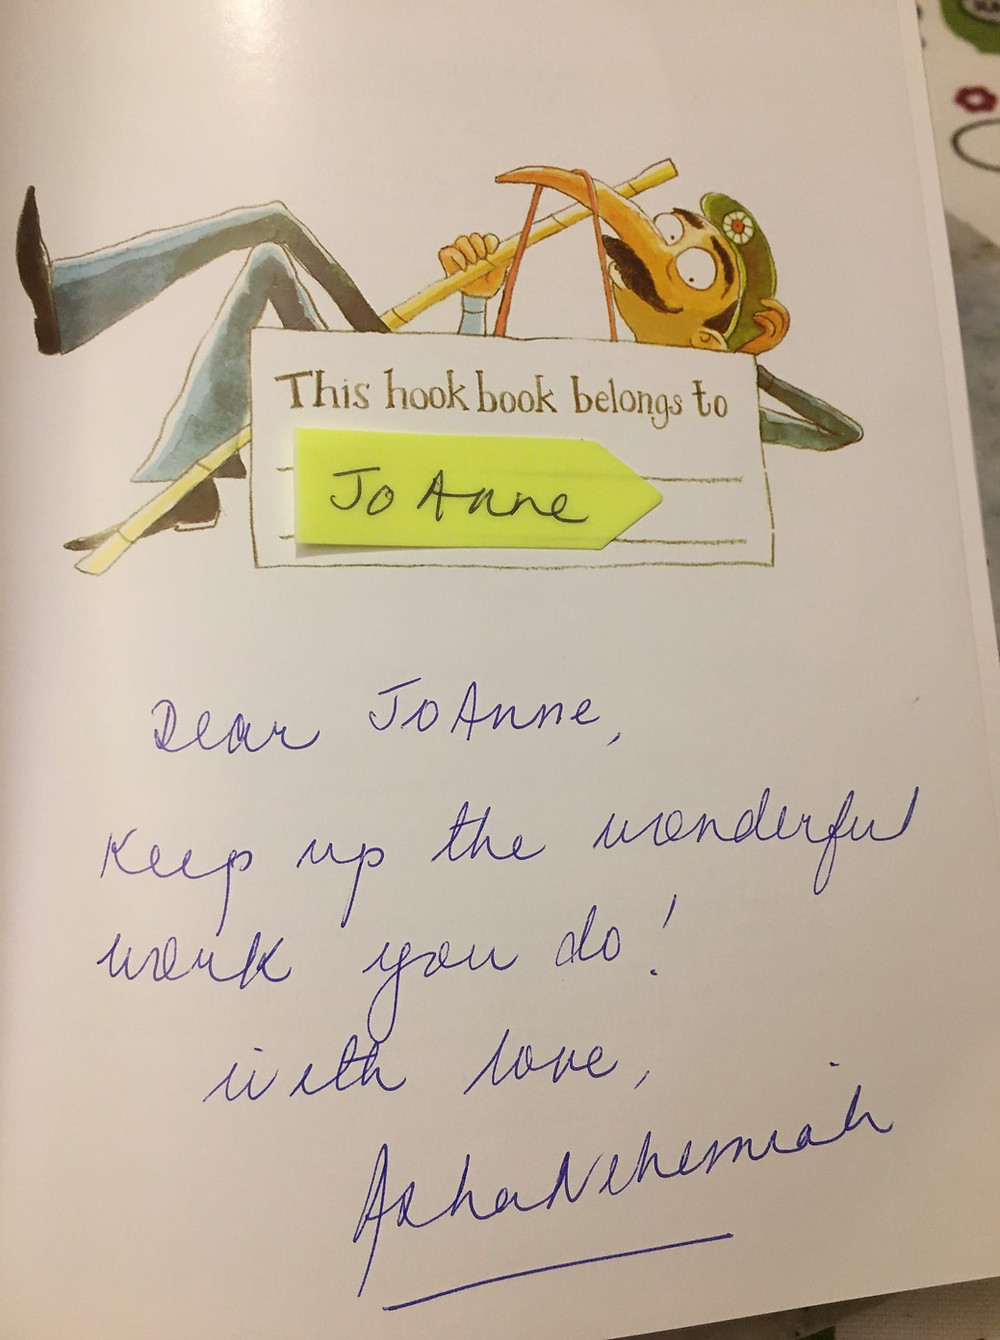 This hook book belongs to
Jo Anne
Dear JoAnne,
Keep up the wonderful
work you do!
with love,
Asha Nehemiah